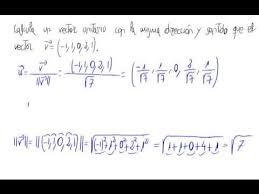 Calcula un vector unitario con la misma dirección y sentido que el
vector v⃗ = (-1,1,0,2,1).
u⃗ = v⃗/||v⃗|| = (-1,1,0,2,1)/√7 = (-1/√7, 1/√7, 0, 2/√7, 1/√7)
||v⃗|| = ||(-1,1,0,2,1)|| = √((-1)²+1²+0²+2²+1²) = √(1+1+0+4+1) = √7